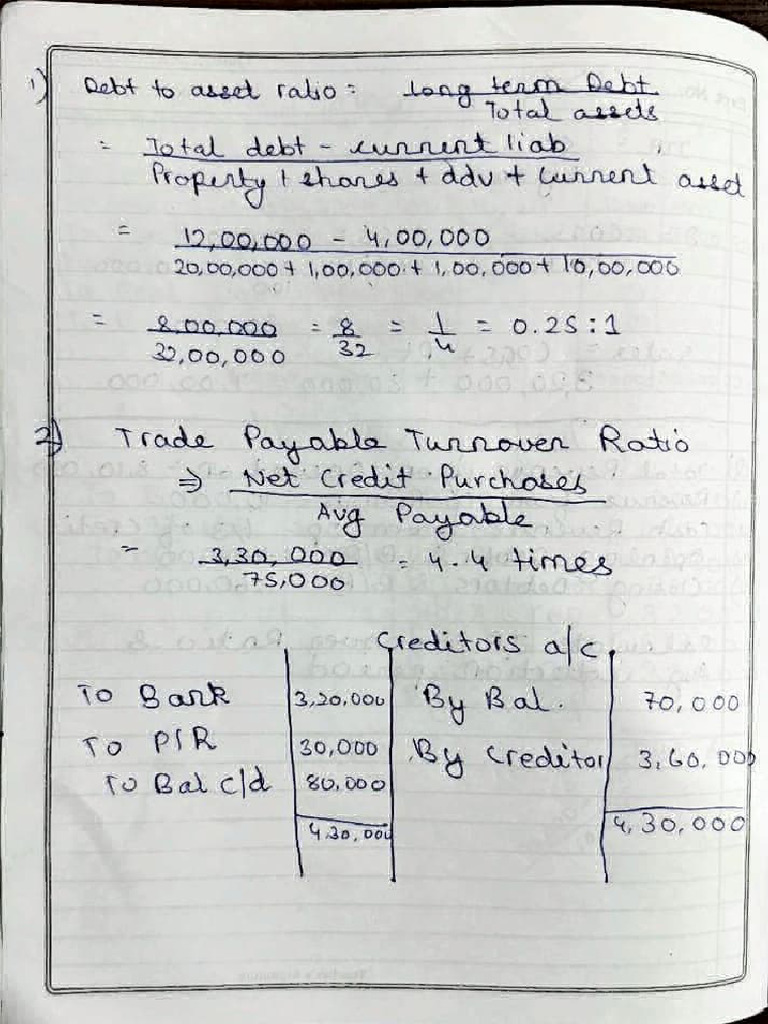 1) Debt to asset ratio = Long term Debt
Total assets
= Total debt - current liab
Property + shares + adv + current asset
= 12,00,000 - 4,00,000
20,00,000 + 1,00,000 + 1,00,000 + 10,00,000
= 8,00,000 = 8 = 1 = 0.25 : 1
32,00,000 32 4
2) Trade Payable Turnover Ratio
⇒ Net Credit Purchases
Avg Payable
= 3,30,000 = 4.4 times
75,000
Creditors a/c
To Bank 3,20,000 By Bal. 70,000
To P/R 30,000 By Creditor 3,60,000
To Bal c/d 80,000
4,30,000 4,30,000